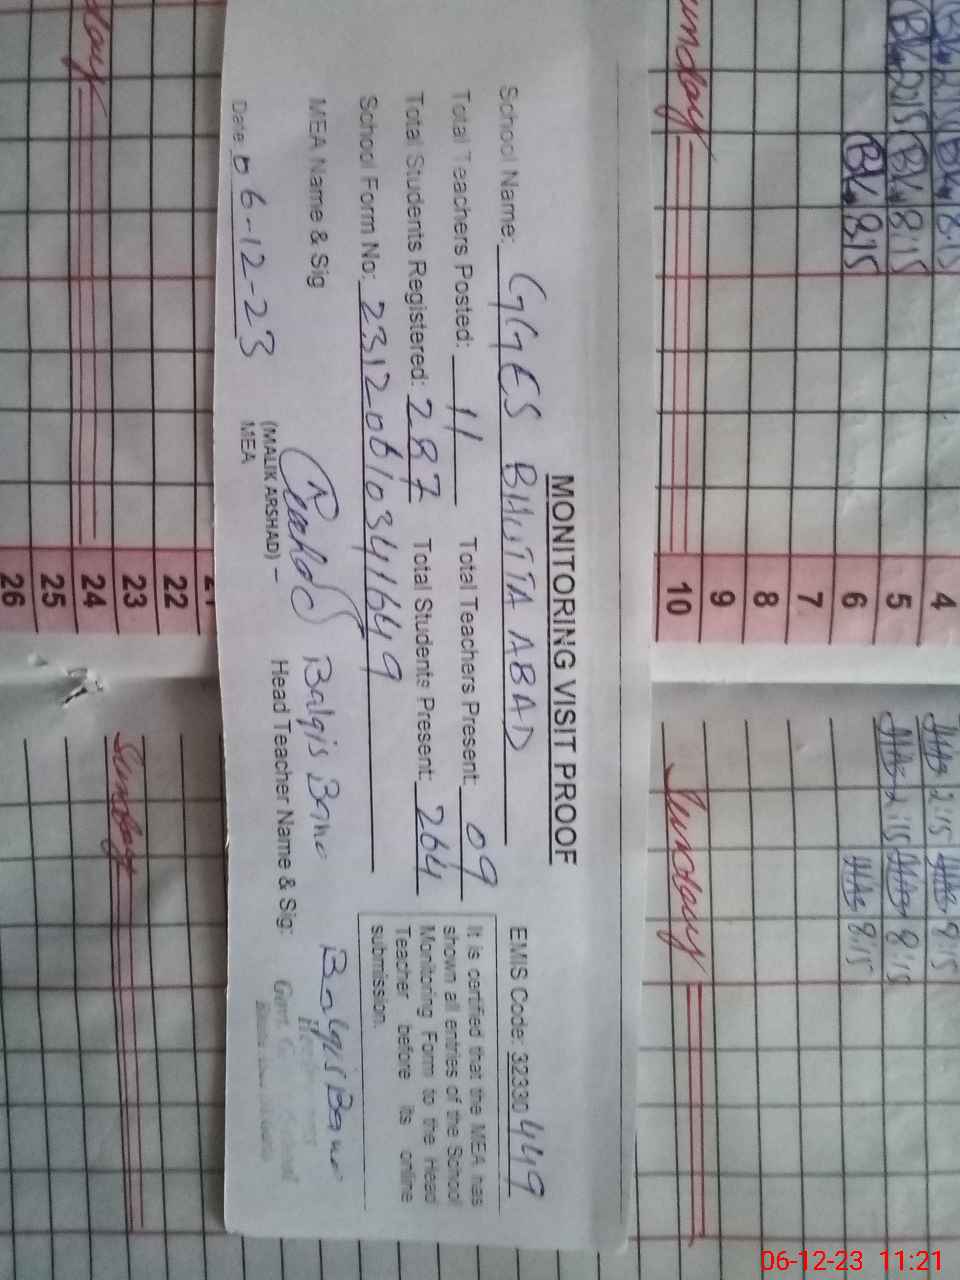 MONITORING VISIT PROOF
School Name: GGES BHUTTA ABAD
EMIS Code: 32330449
Total Teachers Posted: 11 Total Teachers Present: 09
Total Students Registered: 287 Total Students Present: 264
School Form No: 231206103416649
It is certified that the MEA has
shown all entries of the School
Monitoring Form to the Head
Teacher before its online
submission.
MEA Name & Sig
(MALIK ARSHAD) –
MEA
Balqis Bano
Head Teacher Name & Sig:
Balqis Bano
Date 06-12-23
4
5
6
7
8
9
10
22
23
24
25
26
2:15
8:15
2:15
8:15
8:15
2:15
8:15
2:15
8:15
8:15
Sunday
Sunday
06-12-23 11:21